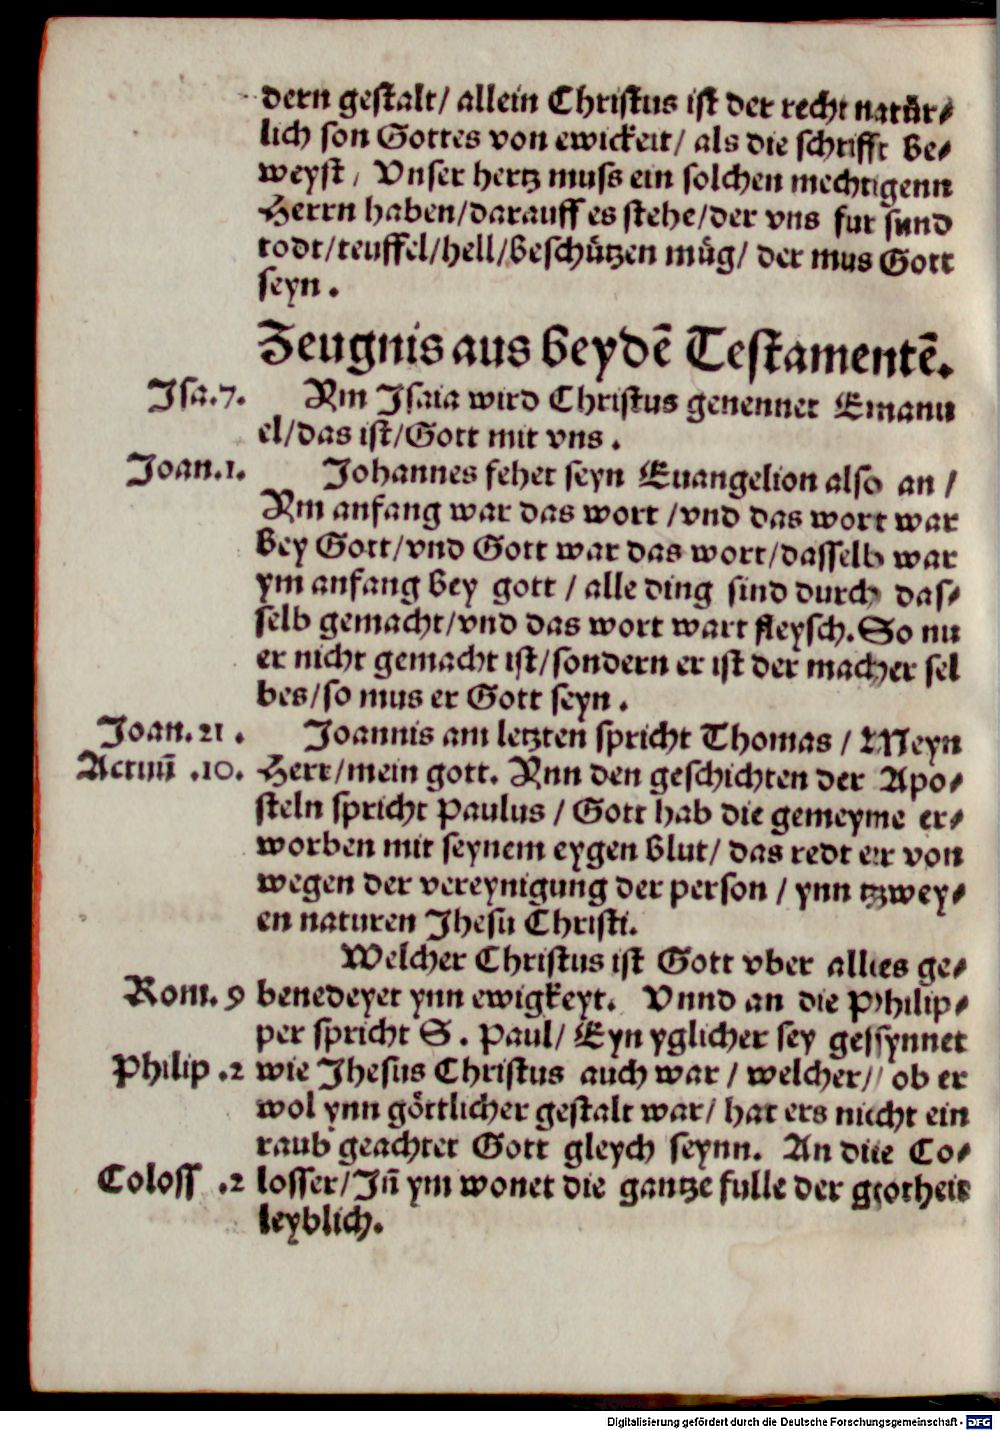 dern gestalt/ allein Christus ist der recht natůr-
lich son Gottes von ewickeit/ als die schrifft be-
weyst / Vnser hertz muss ein solchen mechtigenn
Herrn haben/darauff es stehe/der vns fur sund
todt/teuffel/hell/beschůtzen můg/ der mus Gott
seyn .
Zeugnis aus beydē Testamentē.
Isa.7. Am Isaia wird Christus genennet Emanu
el/das ist/Gott mit vns .
Joan.1. Johannes fehet seyn Euangelion also an /
Am anfang war das wort /vnd das wort war
bey Gott/vnd Gott war das wort/dasselb war
ym anfang bey gott / alle ding sind durch das-
selb gemacht/vnd das wort wart fleysch. So nu
er nicht gemacht ist/sondern er ist der macher sel
bes/so mus er Gott seyn .
Joan. 21 . Joannis am letzten spricht Thomas / Meyn
Actuū .10. Herr/mein gott. Ynn den geschichten der Apo-
steln spricht Paulus / Gott hab die gemeyme er-
worben mit seynem eygen blut/ das redt er von
wegen der vereynigung der person / ynn tzwey-
en naturen Jhesu Christi.
Welcher Christus ist Gott vber alles ge-
Rom. 9 benedeyet ynn ewigkeyt. Vnnd an die Philip-
per spricht S . Paul/ Eyn yglicher sey gessynnet
Philip .2 wie Jhesus Christus auch war / welcher/ ob er
wol ynn göttlicher gestalt war/ hat ers nicht ein
raub geachtet Gott gleych seynn. An die Co-
Coloss .2 losser/Jn̄ ym wonet die gantze fulle der gotheit
leyblich.
Digitalisierung gefördert durch die Deutsche Forschungsgemeinschaft - DFG